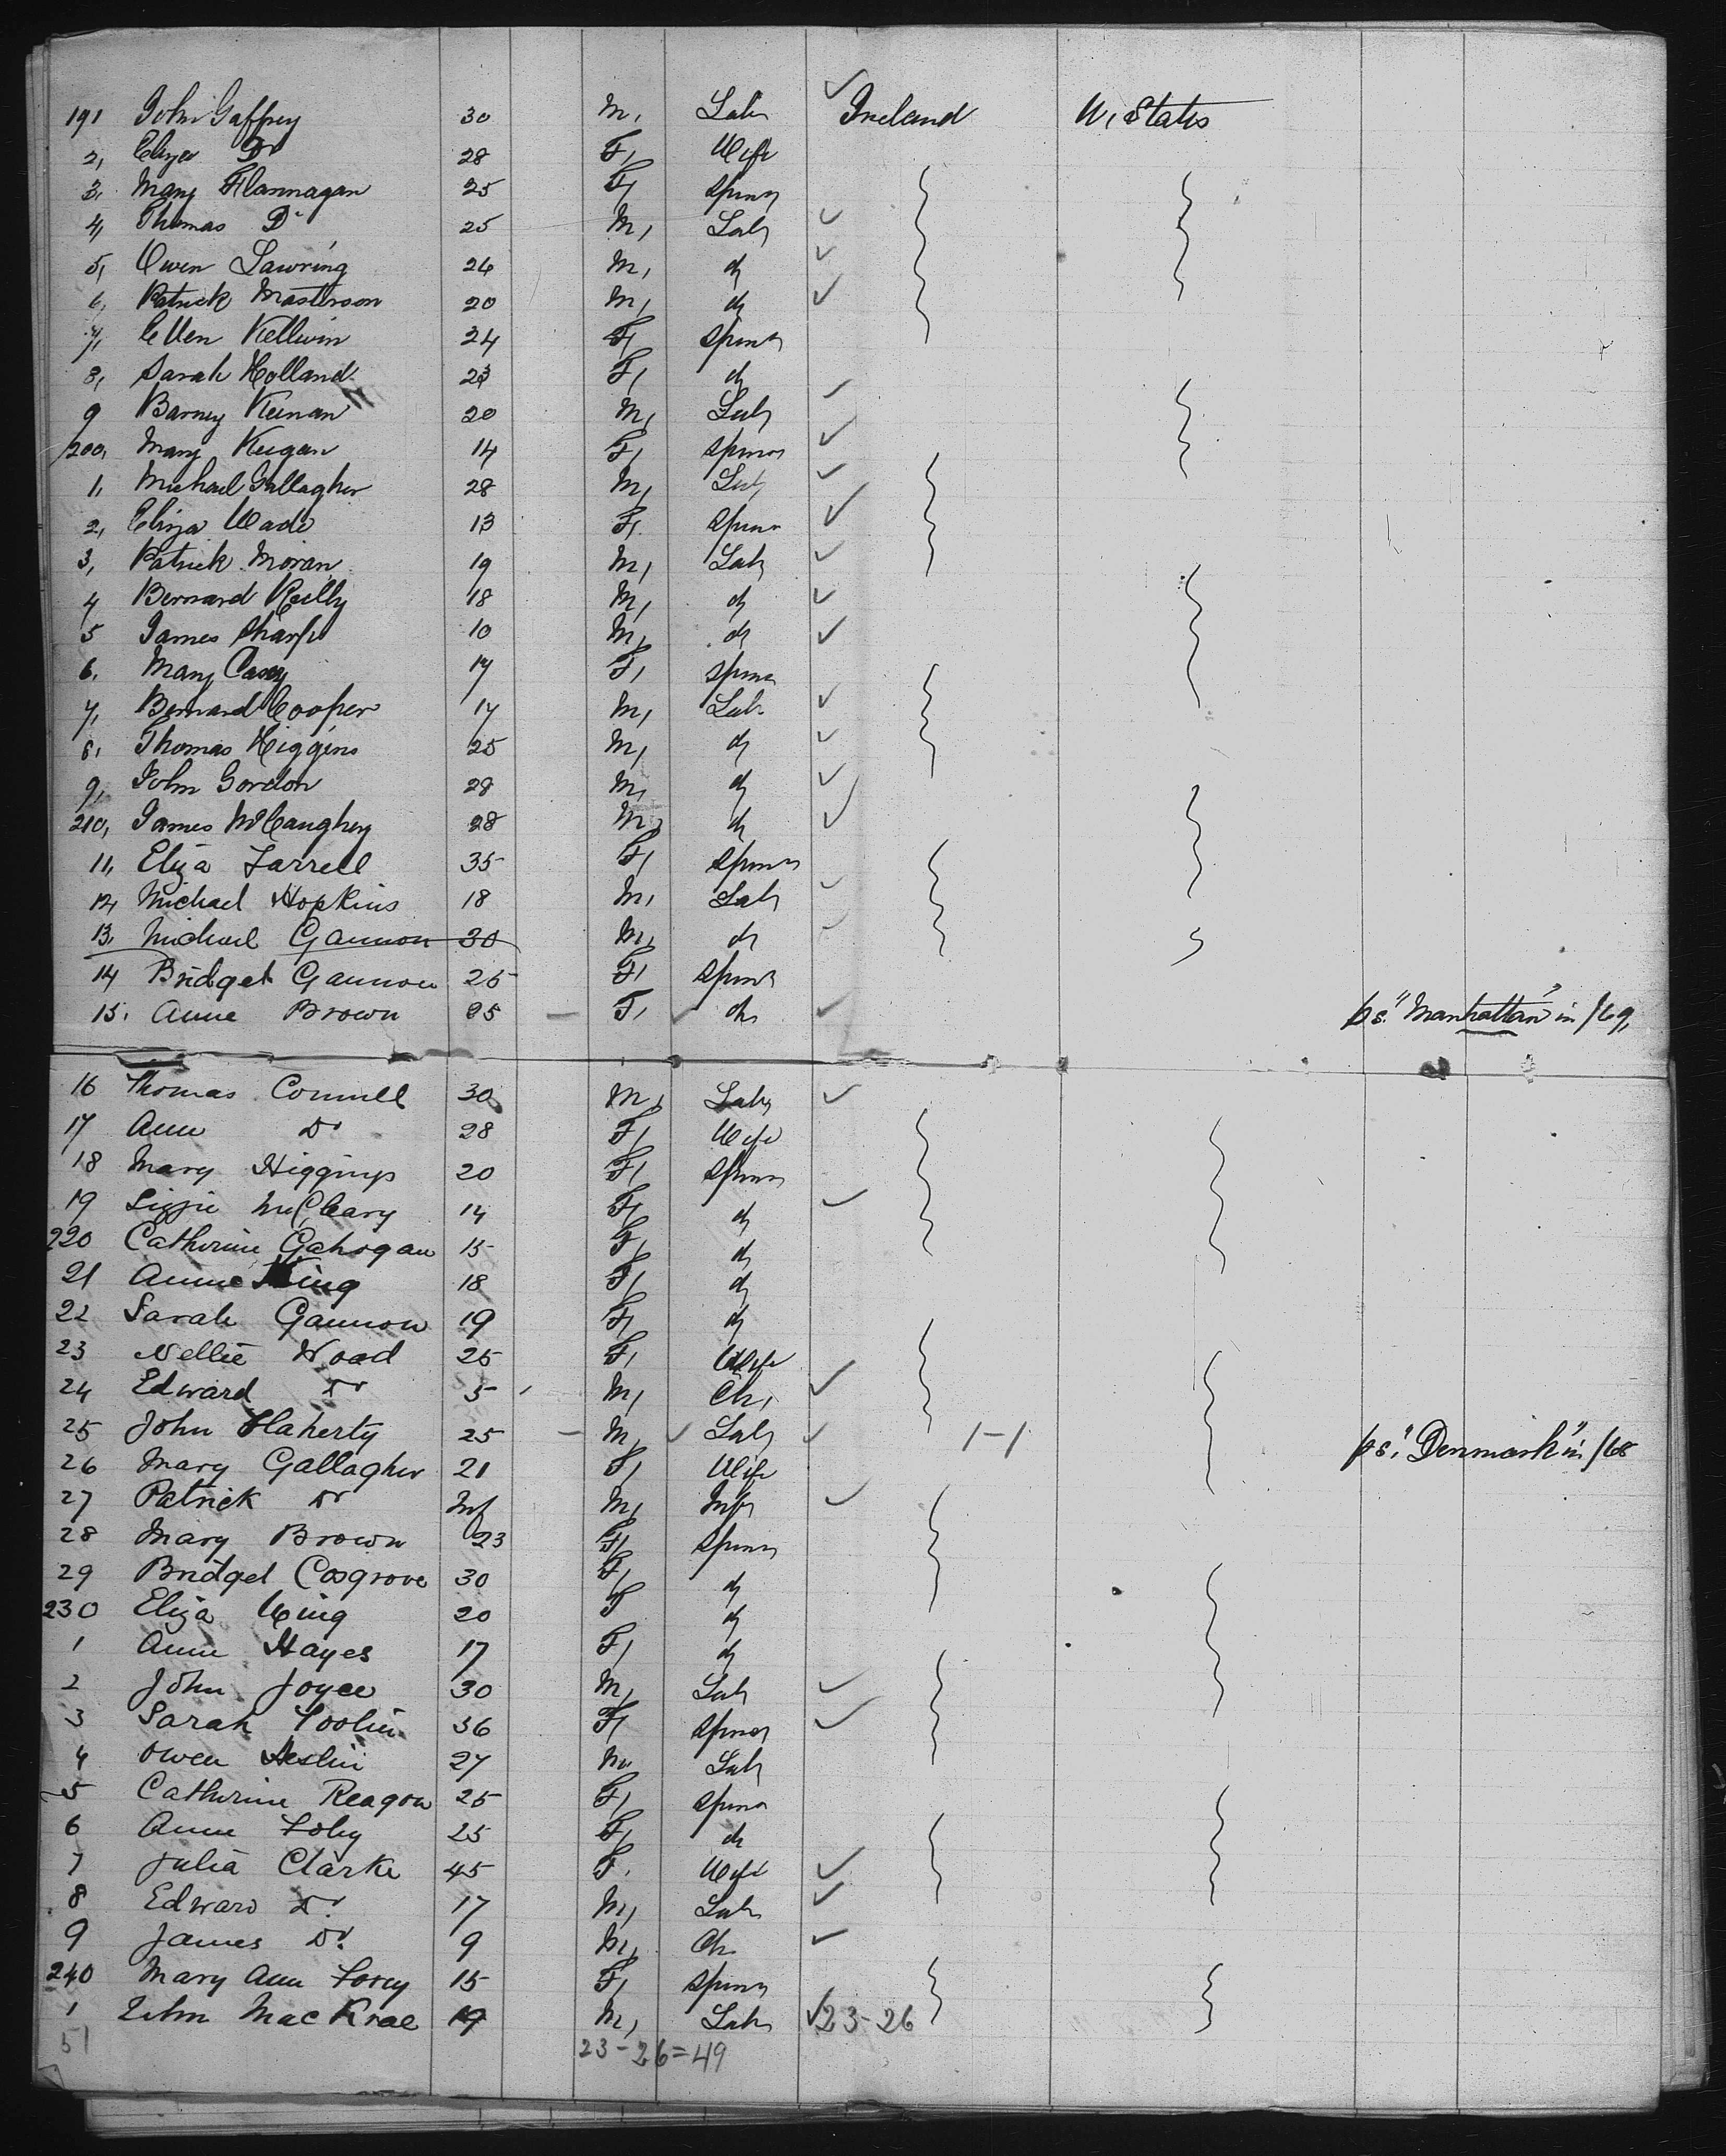 191 John Gaffney 30 M, Labr ✓ Ireland U, States
2, Eliza Do 28 F, Wife
3, Mary Flannagan 25 F, Spinsr
4, Thomas Do 25 M, Labr ✓
5, Owen Lawring 26 M, do ✓
6, Patrick Masterson 20 M, do ✓
7, Ellen Kellwin 24 F, Spinsr
8, Sarah Holland 23 F, do
9 Barney Keenan 20 M, Labr ✓
200, Mary Keegan 14 F, Spinsr ✓
1, Michael Gallagher 28 M, Labr ✓
2, Eliza Wade 13 F, Spinsr ✓
3, Patrick Moran 19 M, Labr ✓
4 Bernard Reilly 18 M, do ✓
5 James Sharpe 10 M, do ✓
6, Mary Casey 17 F, Spinsr
7, Bernard Cooper 17 M, Labr ✓
8, Thomas Higgins 25 M, do ✓
9, John Gordon 28 M, do ✓
210, James McCaughey 28 M, do ✓
11, Eliza Farrell 35 F, Spinsr
12, Michael Hopkins 18 M, Labr ✓
13, Michael Gannon 30 M, do ✓
14 Bridget Gannon 25 F, Spinsr
15, Anne Brown 25 — F, ✓ do ✓ ps. "Manhattan" in /69,
16 Thomas Connell 30 M, Labr ✓
17 Ann Do 28 F, Wife
18 Mary Higgins 20 F, Spinsr
19 Lizzie McCleary 14 F, do ✓
220 Catherine Gahogan 15 F, do
21 Annie King 18 F, do
22 Sarah Gannon 19 F, do
23 Nellie Woad 25 F, Wife
24 Edward Do 5 M, Ch, ✓
25 John Flaherty 25 — M, ✓ Labr ✓ 1-1 ps. "Denmark" in /68
26 Mary Gallagher 21 F, Wife
27 Patrick Do Inf M, Inft ✓
28 Mary Brown 23 F, Spinsr
29 Bridget Cosgrove 30 F, do
230 Eliza King 20 F do
1 Anne Hayes 17 F, do
2 John Joyce 30 M, Labr ✓
3 Sarah Toolin 36 F, Spinsr ✓
4 Owen Heslin 27 M, Labr
5 Catherine Reagon 25 F, Spinsr
6 Anne Foley 25 F, do
7 Julia Clarke 45 F. Wife ✓
8 Edward Do 17 M, Labr ✓
9 James Do 9 M, Ch. ✓
240 Mary Ann Torey 15 F, Spinsr
1 John MacKrae 19 M, Labr ✓ 23-26
51 23-26=49